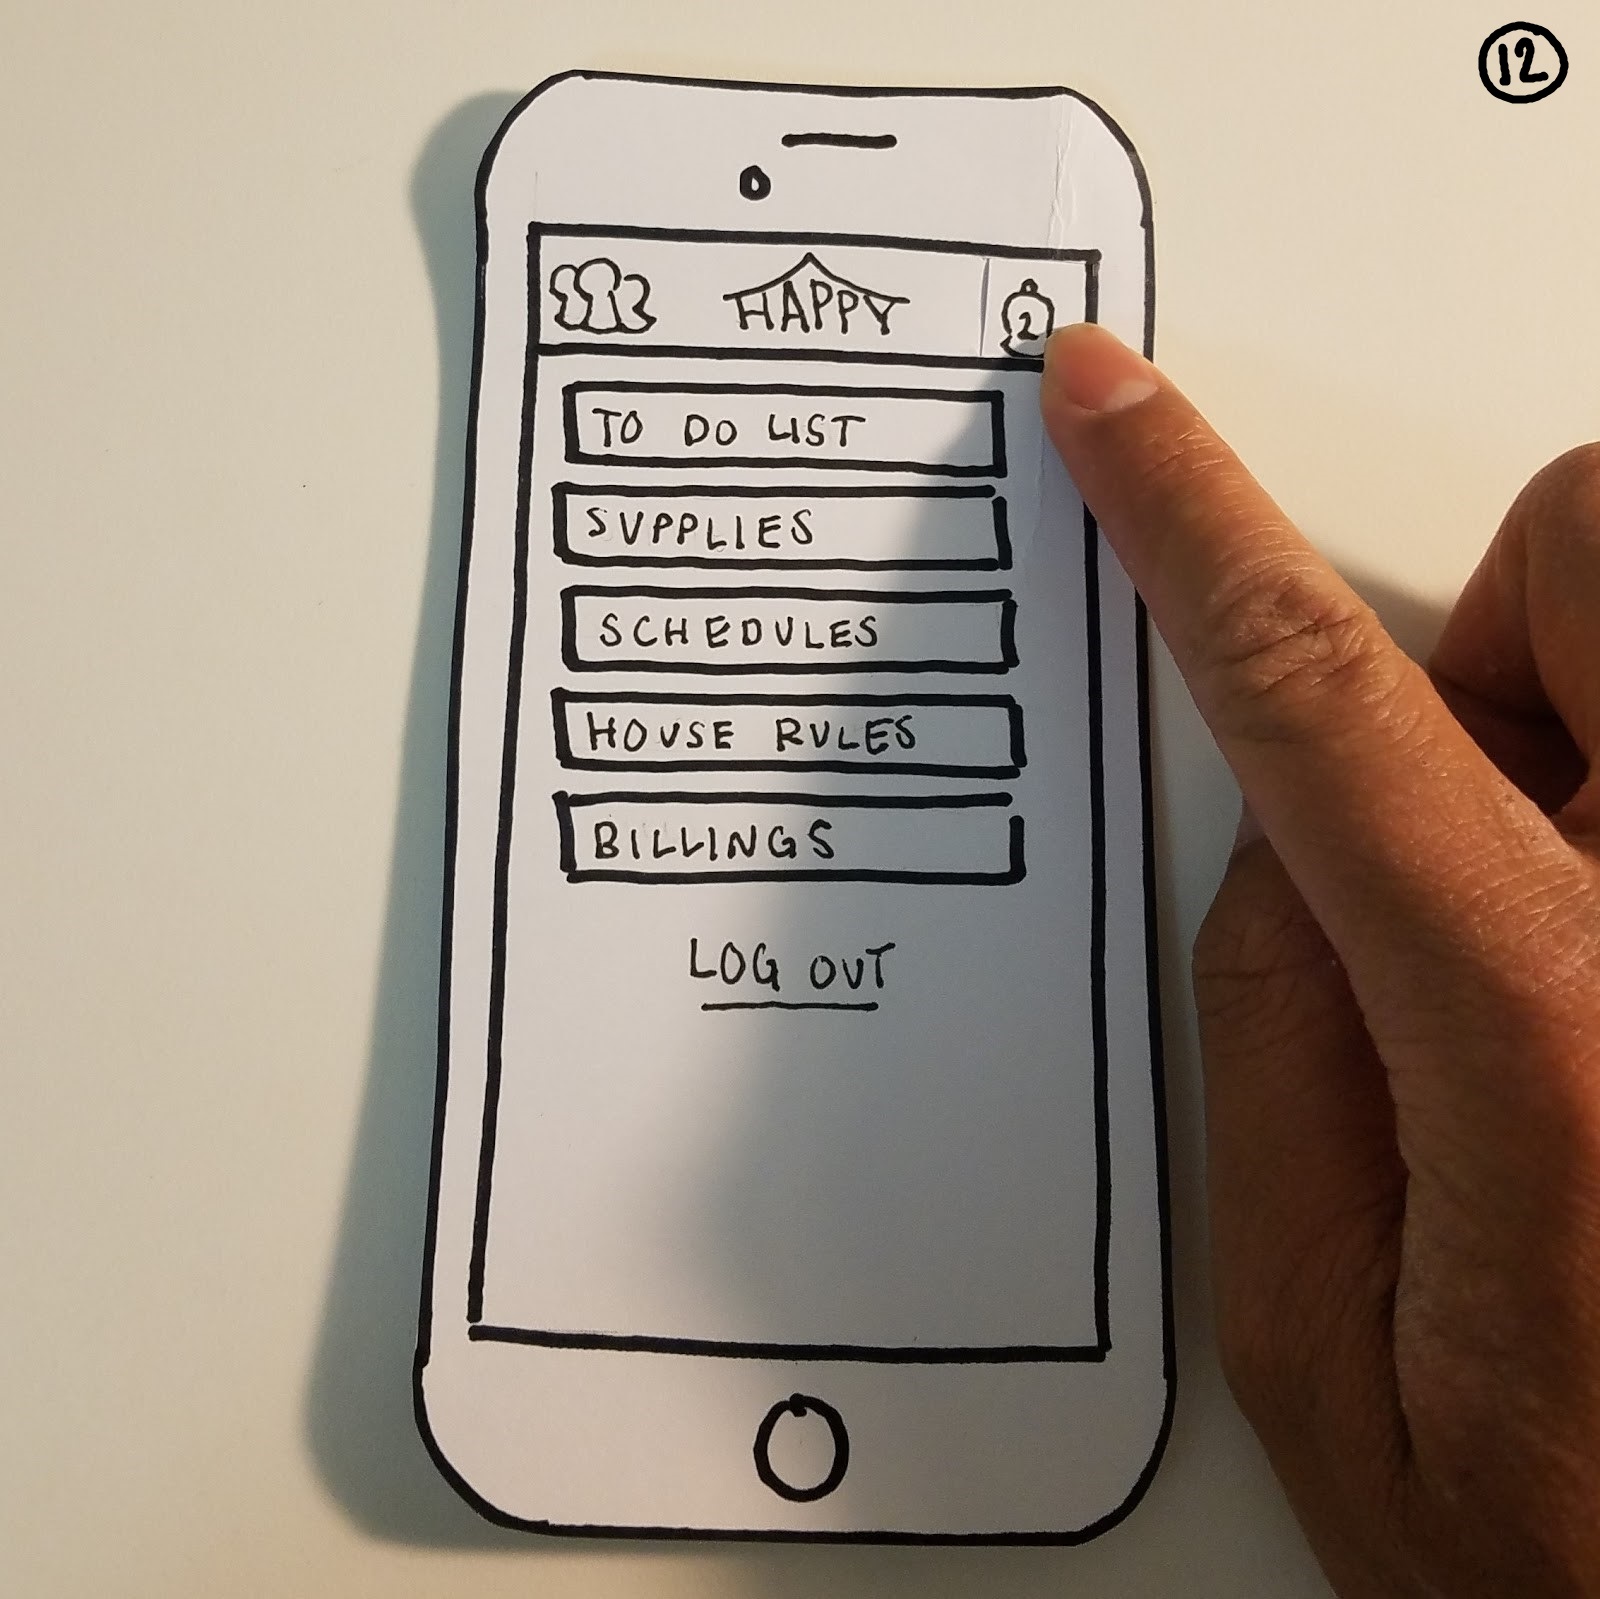 12
HAPPY
2
TO DO LIST
SUPPLIES
SCHEDULES
HOUSE RULES
BILLINGS
LOG OUT